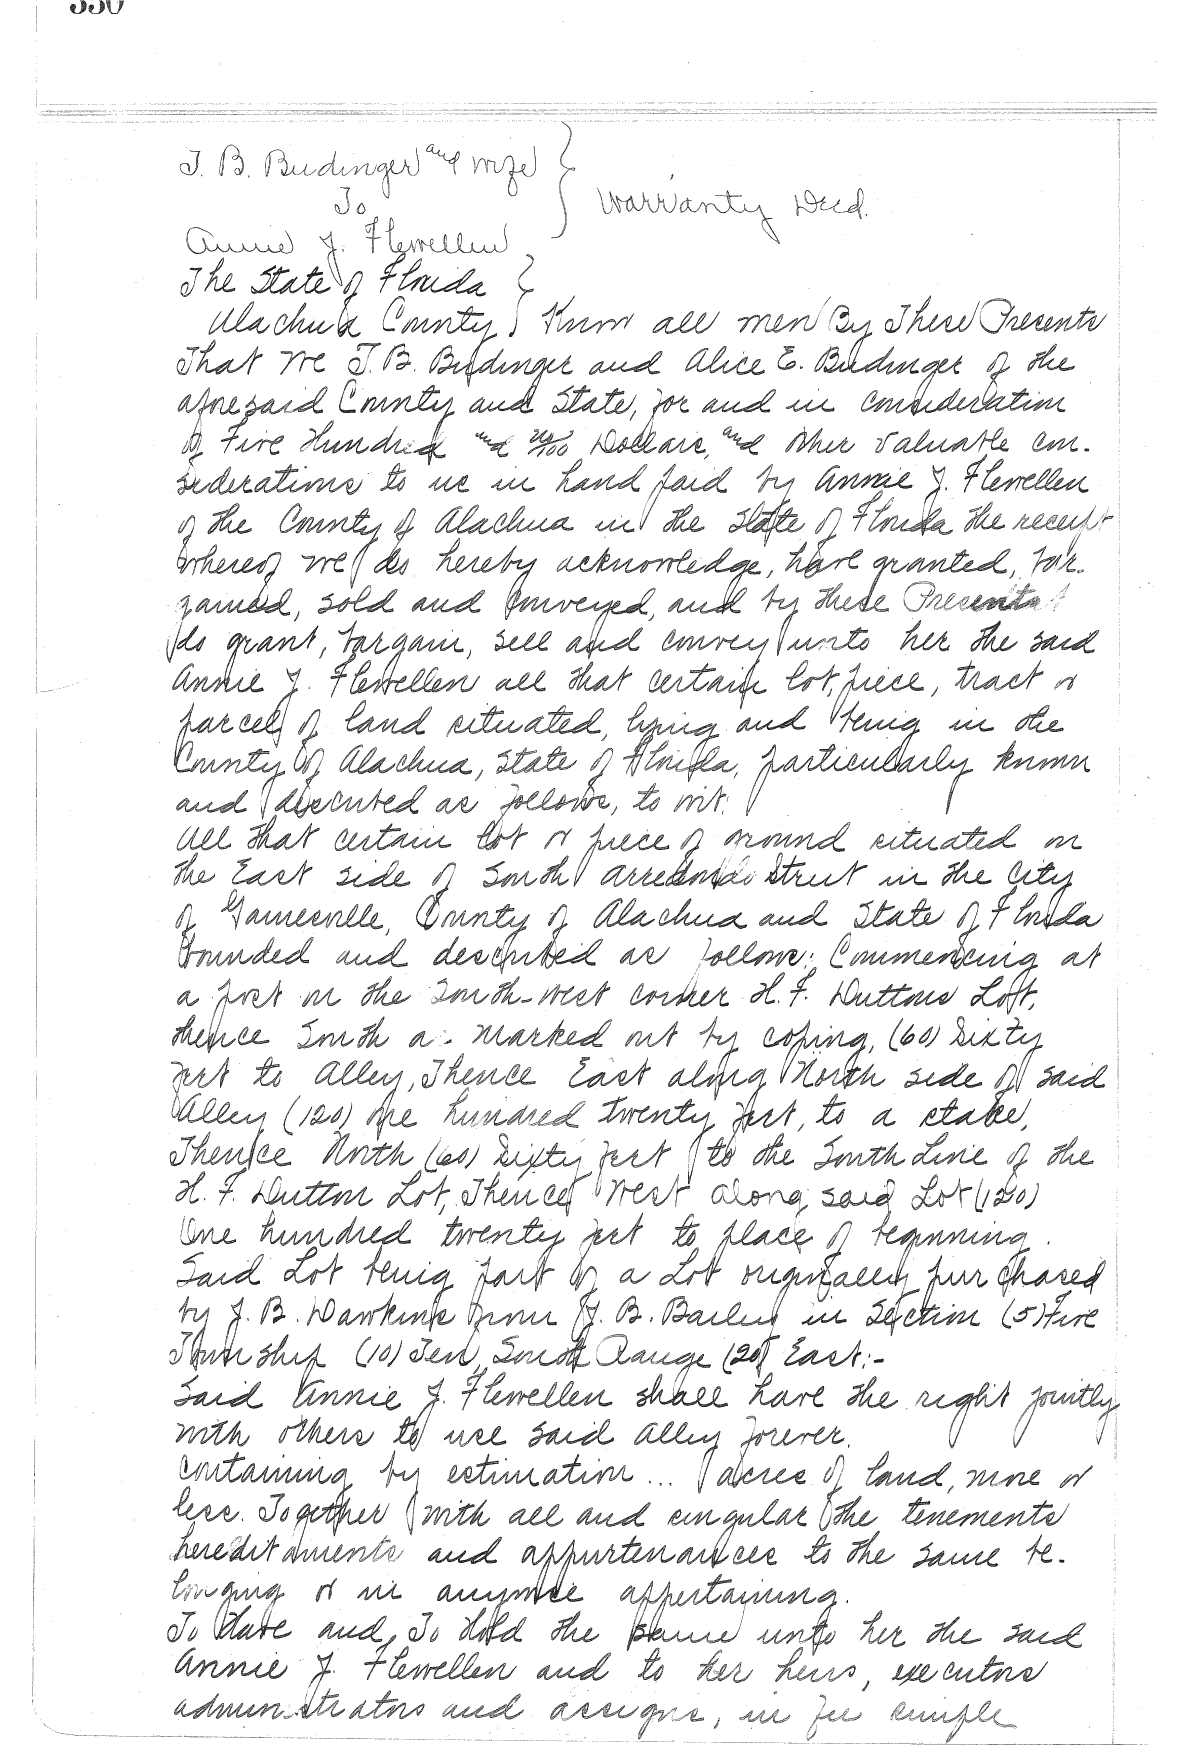 330
T. B. Budinger and wife
To
Warranty Deed.
Annie J. Flewellen
The State of Florida
Alachua County Know all men By These Presents
That We T. B. Budinger and Alice E. Budinger of the
aforesaid County and State, for and in consideration
of Five Hundred and no/100 Dollars, and other valuable con-
siderations to us in hand paid by Annie J. Flewellen
of the County of Alachua in the State of Florida the receipt
whereof we do hereby acknowledge, have granted, bar-
gained, sold and conveyed, and by these Presents
do grant, bargain, sell and convey unto her the said
Annie J. Flewellen all that certain lot, piece, tract or
parcel of land situated, lying and being in the
County of Alachua, State of Florida, particularly known
and described as follows, to wit:
All that certain lot or piece of ground situated on
the East side of South Arredondo Street in the City
of Gainesville, County of Alachua and State of Florida
bounded and described as follows: Commencing at
a post on the South-west corner H. F. Duttons Lot,
thence South as marked out by coping, (60) Sixty
feet to Alley, Thence East along North side of said
Alley (120) one hundred twenty feet, to a stake,
Thence North (60) Sixty feet to the South Line of the
H. F. Dutton Lot, Thence West along said Lot (120)
One hundred twenty feet to place of beginning.
Said Lot being part of a Lot originally purchased
by J. B. Dawkins from J. B. Bailey in Section (5) Five
Township (10) Ten, South Range (20) East:-
Said Annie J. Flewellen shall have the right jointly
with others to use said Alley forever.
Containing by estimation ... acres of land, more or
less. Together with all and singular the tenements
hereditaments and appurtenances to the same be-
longing or in anywise appertaining.
To Have and To Hold the same unto her the said
Annie J. Flewellen and to her heirs, executors
administrators and assigns, in fee simple